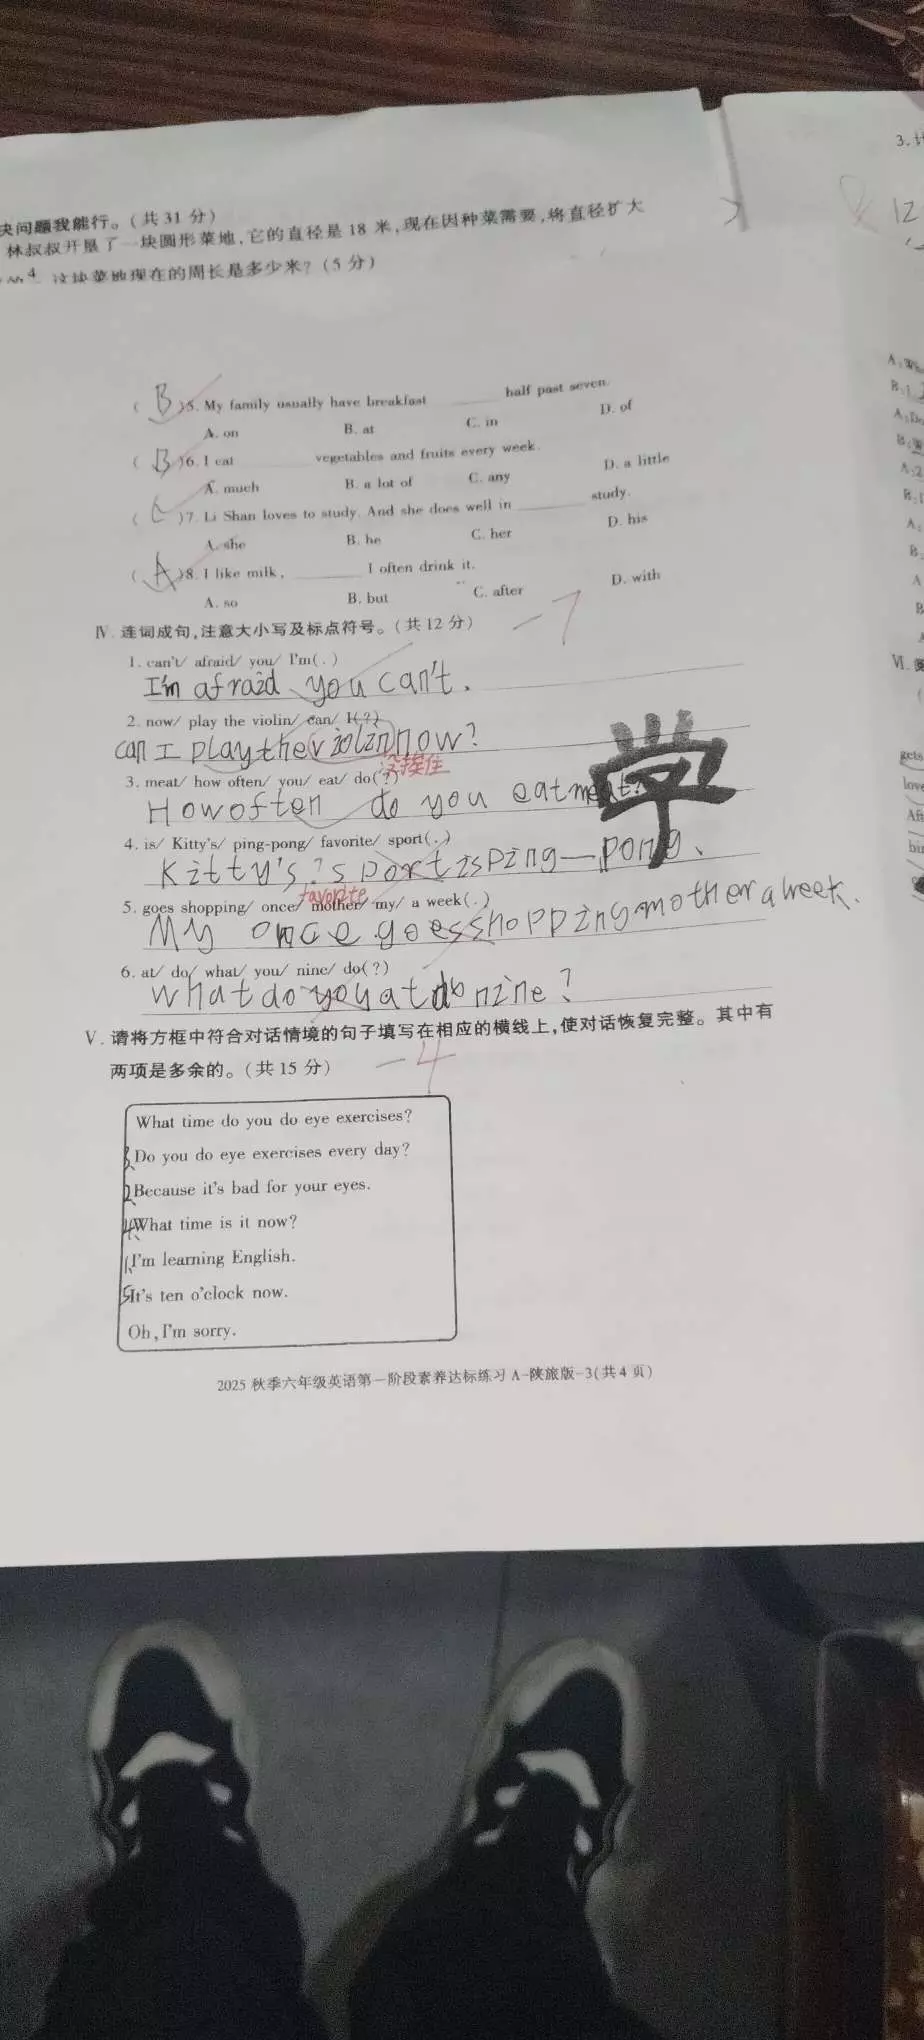 决问题我能行。(共31分)
林叔叔开垦了一块圆形菜地,它的直径是18米,现在因种菜需要,将直径扩大
4 这块菜地现在的周长是多少米?(5分)
(B)5. My family usually have breakfast ______ half past seven.
A. on B. at C. in D. of
(B)6. I eat ______ vegetables and fruits every week.
A. much B. a lot of C. any D. a little
(C)7. Li Shan loves to study. And she does well in ______ study.
A. she B. he C. her D. his
(A)8. I like milk, ______ I often drink it.
A. so B. but C. after D. with
-7
Ⅳ. 连词成句,注意大小写及标点符号。(共12分)
1. can't/ afraid/ you/ I'm(.)
I'm afraid you can't.
2. now/ play the violin/ can/ I(?)
can I play the violin now?
3. meat/ how often/ you/ eat/ do(?)
How often do you eat meat?
学
4. is/ Kitty's/ ping-pong/ favorite/ sport(.)
Kitty's sport is ping—pong.
favorite
5. goes shopping/ once/ mother/ my/ a week(.)
My once goes shopping mother a week.
6. at/ do/ what/ you/ nine/ do(?)
What do you at do nine?
Ⅴ. 请将方框中符合对话情境的句子填写在相应的横线上,使对话恢复完整。其中有
两项是多余的。(共15分)
-4
What time do you do eye exercises?
3、Do you do eye exercises every day?
2、Because it's bad for your eyes.
4、What time is it now?
1、I'm learning English.
5、It's ten o'clock now.
Oh, I'm sorry.
2025秋季六年级英语第一阶段素养达标练习A-陕旅版-3(共4页)
3.
12
A:
B:1.
A:Do
B:
A:2
B:
A:
B:
A
B
Ⅵ.
gets
love
Aft
bu